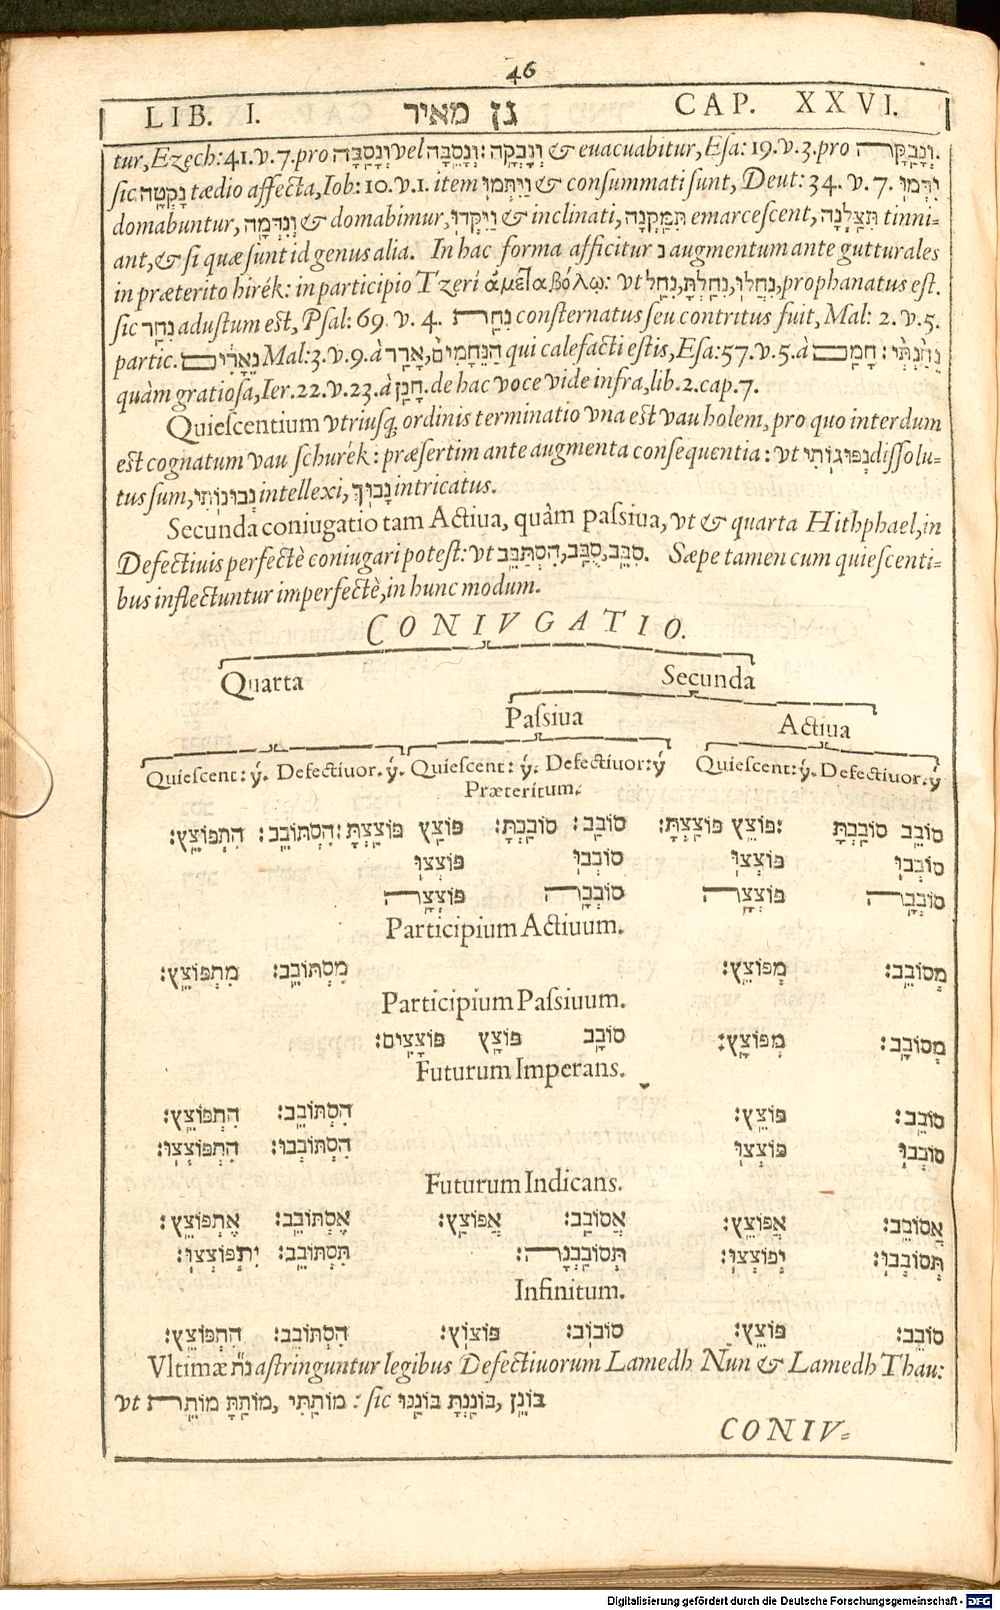 46
LIB. I. גן מאיר CAP. XXVI.
tur, Ezech: 41. v. 7. pro וְנָסַבָּה vel וְנָסֵבָּה: וְנָבְקָה & evacuabitur, Esa: 19. v. 3. pro וְנָבַקָּה.
sic נָקְטָה tædio affecta, Iob: 10. v. 1. item וַיִּתְּמוּ & consummati sunt, Deut: 34. v. 7. יִדְּמוּ
domabuntur, וְנִדְּמָה & domabimur, וַיִּקְּדוּ & inclinati, תִּמַּקְנָה emarcescent, תִּצַּלְנָה tinni-
ant, & si quæ sunt id genus alia. In hac forma afficitur נ augmentum ante gutturales
in præterito hirék: in participio Tzeri ἀμεταβόλῳ: vt נִחַל, נִחַלְתָּ, נִחֲלוּ, prophanatus est.
sic נִחַר adustum est, Psal: 69. v. 4. נִחַת consternatus seu contritus fuit, Mal: 2. v. 5.
partic. נֵאָרִים Mal: 3. v. 9. à אָרַר, הַנֵּחָמִים qui calefacti estis, Esa: 57. v. 5. à חָמַם: נֵחַנְתְּי
quàm gratiosa, Ier. 22. v. 23. à חָנַן. de hac voce vide infra, lib. 2. cap. 7.
Quiescentium vtriusq; ordinis terminatio vna est vau holem, pro quo interdum
est cognatum vau schurék: præsertim ante augmenta consequentia: vt נְפוּגוֹתִי dissolu-
tus sum, נְבוּנוֹתִי intellexi, נָבוֹךְ intricatus.
Secunda coniugatio tam Actiua, quàm passiua, vt & quarta Hithphael, in
Defectiuis perfectè coniugari potest: vt סִבֵּב, סֻבַּב, הִסְתַּבֵּב. Sæpe tamen cum quiescenti-
bus inflectuntur imperfectè, in hunc modum.
CONIVGATIO.
Quarta Secunda
Passiua Actiua
Quiescent: ע֜֜. Defectiuor. ע֜֜. Quiescent: ע֜֜. Defectiuor: ע֜֜ Quiescent: ע֜֜. Defectiuor. ע֜֜
Præteritum.
סוֹבֵב סוֹבַבְתָּ פּוֹצֵץ פּוֹצַצְתָּ: סוֹבַב: סוֹבַבְתָּ: פּוֹצַץ פּוֹצַצְתָּ: הִסְתּוֹבֵב: הִתְפּוֹצֵץ:
סוֹבְבוּ פּוֹצְצוּ סוֹבְבוּ פּוֹצְצוּ
סוֹבְבָה פּוֹצְצָה סוֹבְבָה פּוֹצְצָה
Participium Actiuum.
מְסוֹבֵב: מְפוֹצֵץ: מִסְתּוֹבֵב: מִתְפּוֹצֵץ:
Participium Passiuum.
מְסוֹבָב: מְפוֹצָץ: סוֹבָב פּוֹצָץ פּוֹצָצִים:
Futurum Imperans.
סוֹבֵב: פּוֹצֵץ: הִסְתּוֹבֵב: הִתְפּוֹצֵץ:
סוֹבְבוּ פּוֹצְצוּ הִסְתּוֹבְבוּ: הִתְפּוֹצְצוּ:
Futurum Indicans.
אֲסוֹבֵב: אֲפוֹצֵץ: אֲסוֹבַב: אֲפוֹצַץ: אֶסְתּוֹבֵב: אֶתְפּוֹצֵץ:
תְּסוֹבְבוּ: יְפוֹצְצוּ: תְּסוֹבַבְנָה: תִּסְתּוֹבֵב: יִתְפּוֹצְצוּ:
Infinitum.
סוֹבֵב: פּוֹצֵץ: סוֹבוֹב: פּוֹצוֹץ: הִסְתּוֹבֵב: הִתְפּוֹצֵץ:
Vltimæ נ֜֜ת astringuntur legibus Defectiuorum Lamedh Nun & Lamedh Thau:
vt מוֹתֵת מוֹתַתָּ, מוֹתַתִּי: sic בּוֹנֵן, בּוֹנַנְתָּ בּוֹנַנּוּ
CONIV-